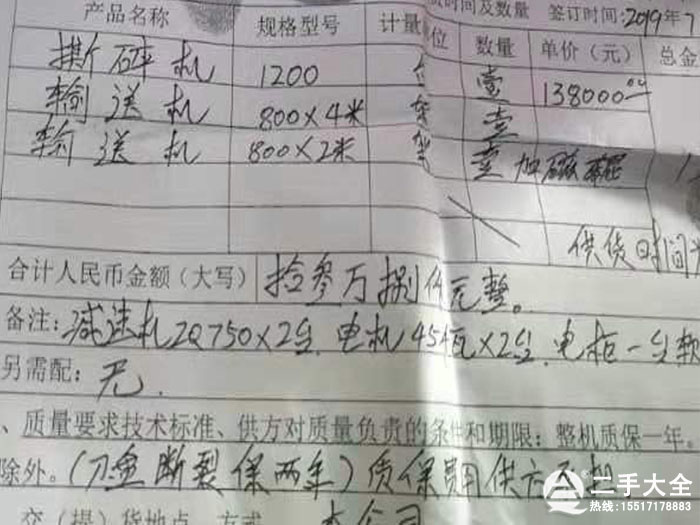 货时间及数量 签订时间:2019年
产品名称 规格型号 计量单位 数量 单价（元） 总金
撕碎机 1200 台 壹 138000.00
输送机 800×4米 壹
输送机 800×2米 壹 加磁辊
供货时间
合计人民币金额（大写） 拾叁万捌仟元整。
备注: 减速机ZQ750×2台. 电机45瓩×2台. 电柜一台
另需配: 无.
、质量要求技术标准、供方对质量负责的条件和期限: 整机质保一年。
除外。(刀盒断裂保两年) 质保费用供方
交（提）货地点、方式 本公司
二手大全
热线:15517178883